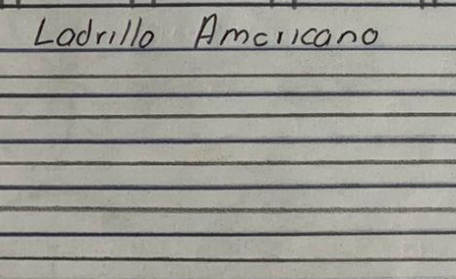 Ladrillo Americano